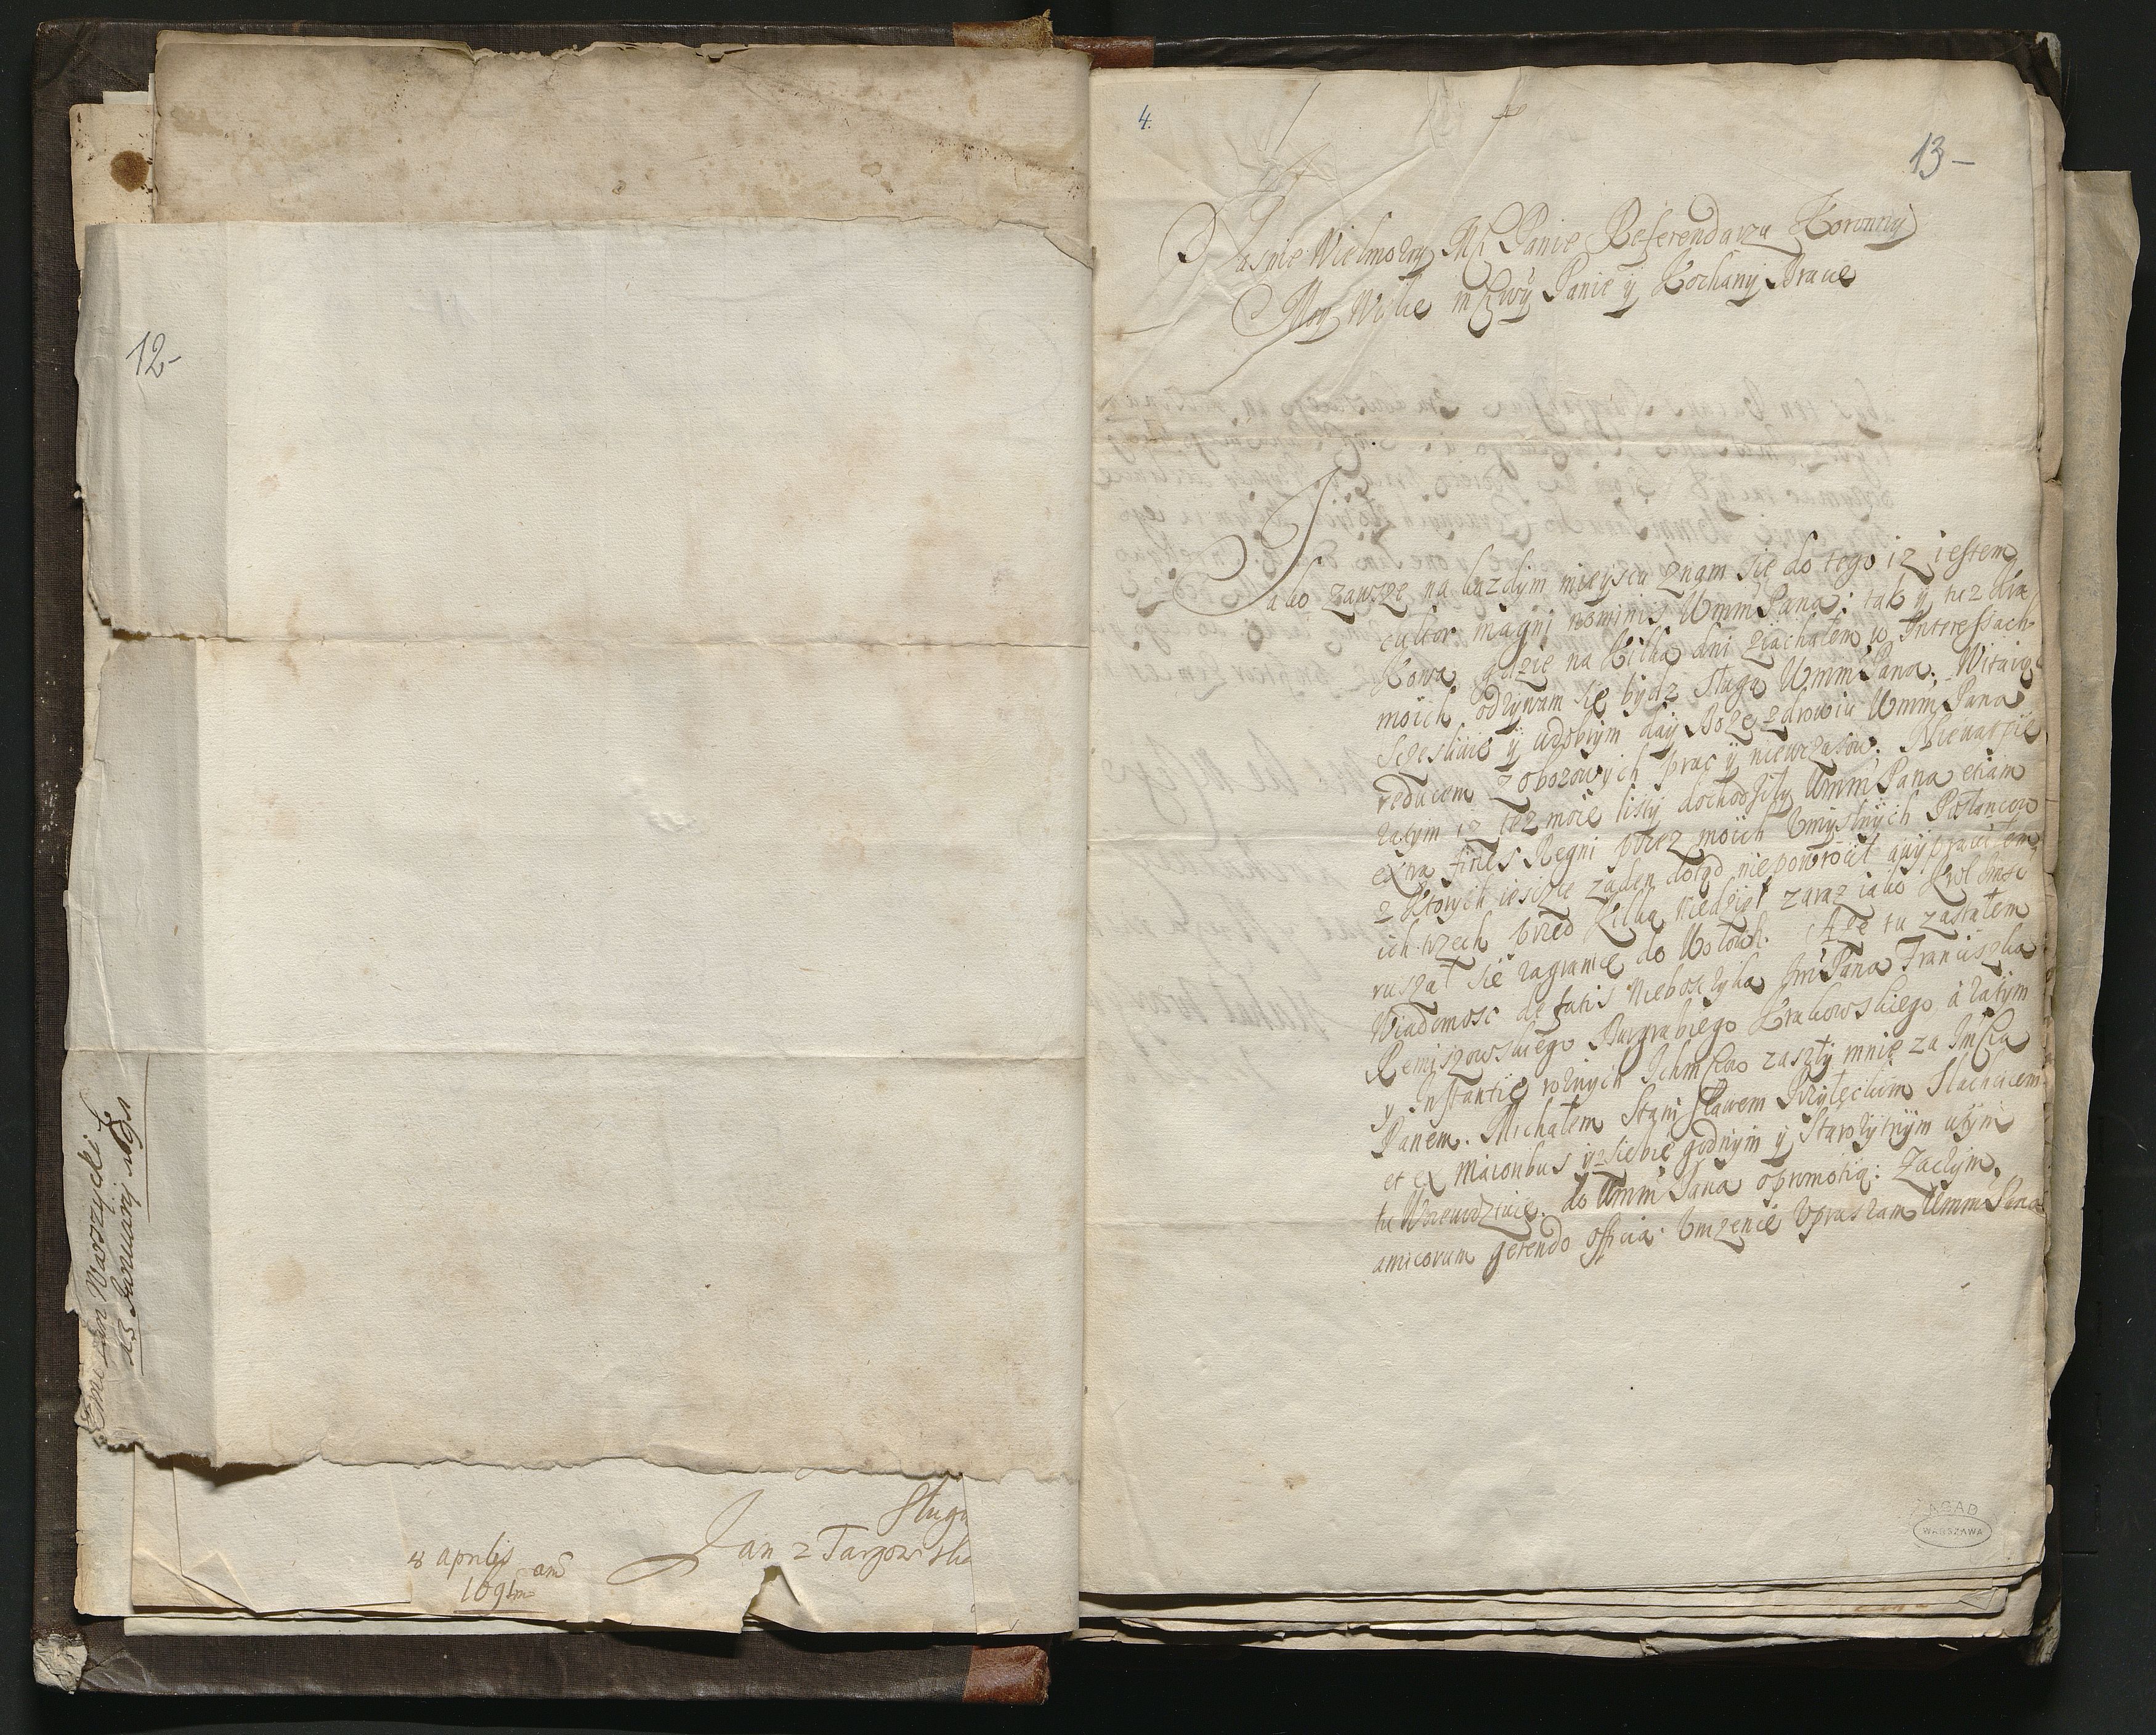 12-
Jmć Pan Warszycki
d 13 Januarij 1691
Sługa
Jan z Targowiska
8 aprilis
1691
4.
13-
Jasnie Wielmozny Mſci Panie Referendarzu Koronny
Moy Wielce mſciwÿ Panie ÿ Kochany Bracie
Jako zawsze na kazdym mieyscu znam się do tego iz iestem
cultor magni nominis Wmm Pana: tak ÿ tu z dla
Kowa, gdzie na Kilka dni ziachałem w Interessach
moich odzywam się bydz sługą Wmm Pana. Witaiąc
Sczesliwie ÿ w dobrym day Boze zdrowiu Wmm Pana
reducem z obozowych prac ÿ niewczasow.
zatym iz też moie listy dochodziły Wmm Pana etiam
extra fines Regni przez moich Umyslnych Posłancow
z Ktorych ieszcze zaden dotąd niepowrocił
ich trzech przed Kilką Niedziel zaraz iako Krol Jmsć
ruszał się zagranicę do Wołoch. A ze tu zastałem
Wiadomosc de fatis Nieboszczyka Jm Pana Franciszka
Remiszowskiego Burgrabiego Krakowskiego, á zatym
y Instantie roznych Ichmſciow zaszły mnie za Jmſcią
Panem Michałem Stanisławem Przyłęckim Slachcicem
et ex Maioribus ÿ z siebie godnym ÿ Starozytnym w tym
tu Woiewodztwie. do Wmm Pana o promotią: Zaczym
amicorum gerendo officia Unizenie Upraszam Wmm Pana
AGAD
WARSZAWA